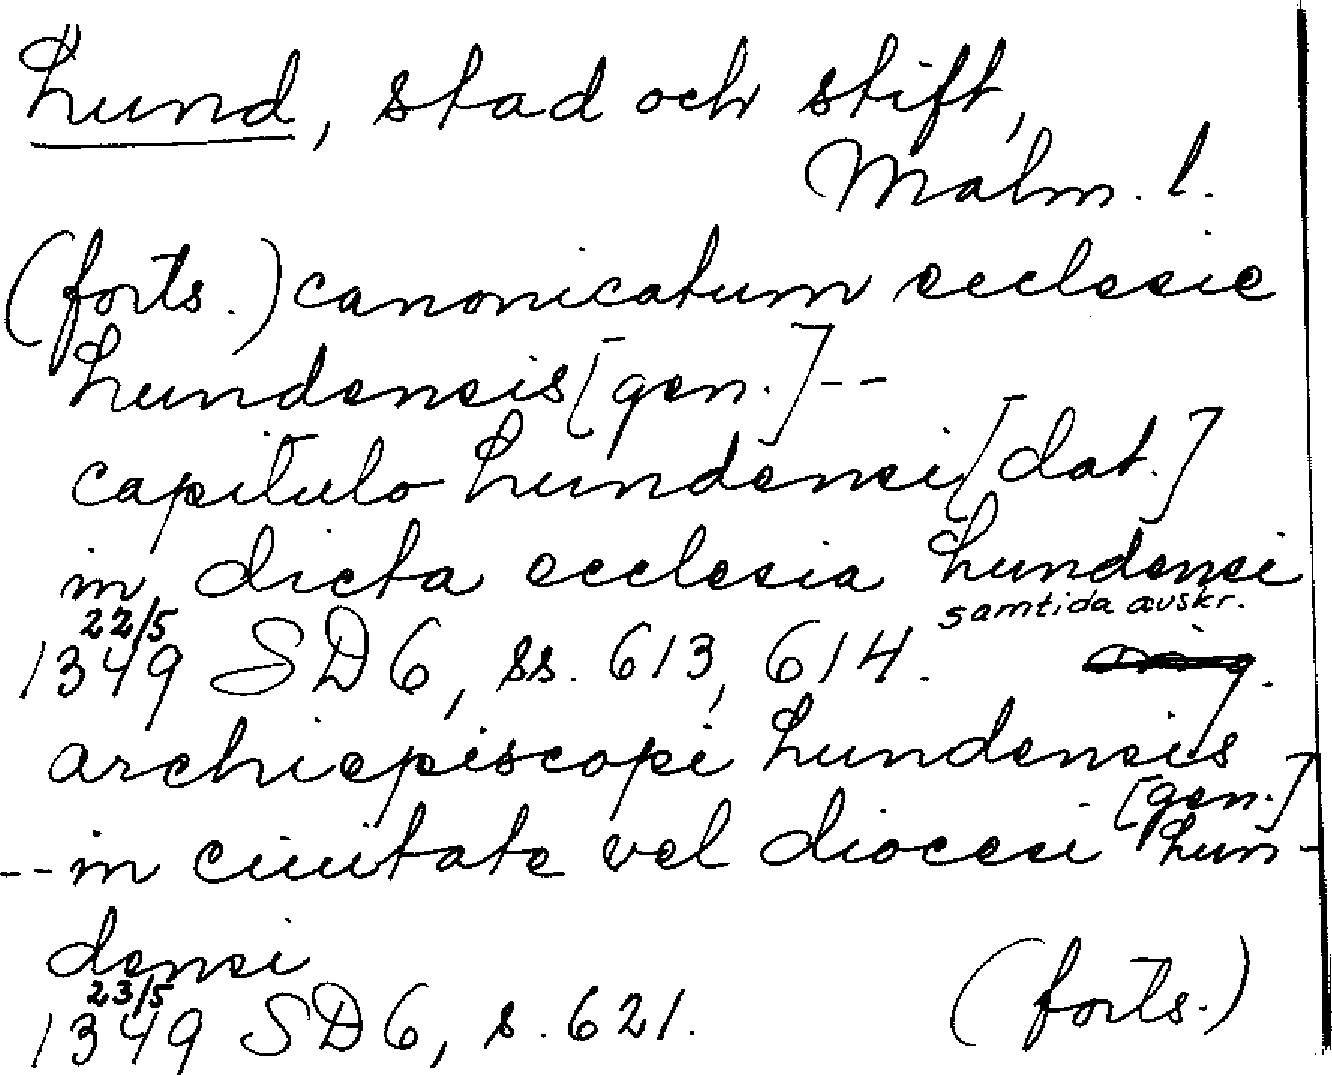 Lund, stad och stift,
Malm. l.
(forts.) canonicatum ecclesie
Lundensis [gen.] --
capitulo Lundensi [dat.]
in dicta ecclesia Lundensi
samtida avskr.
22/5
1349 SD6, ss. 613, 614.
archiepiscopi Lundensis
[gen.]
--in ciuitate vel diocesi Lun-
densi
23/5
1349 SD6, s. 621.
(forts.)